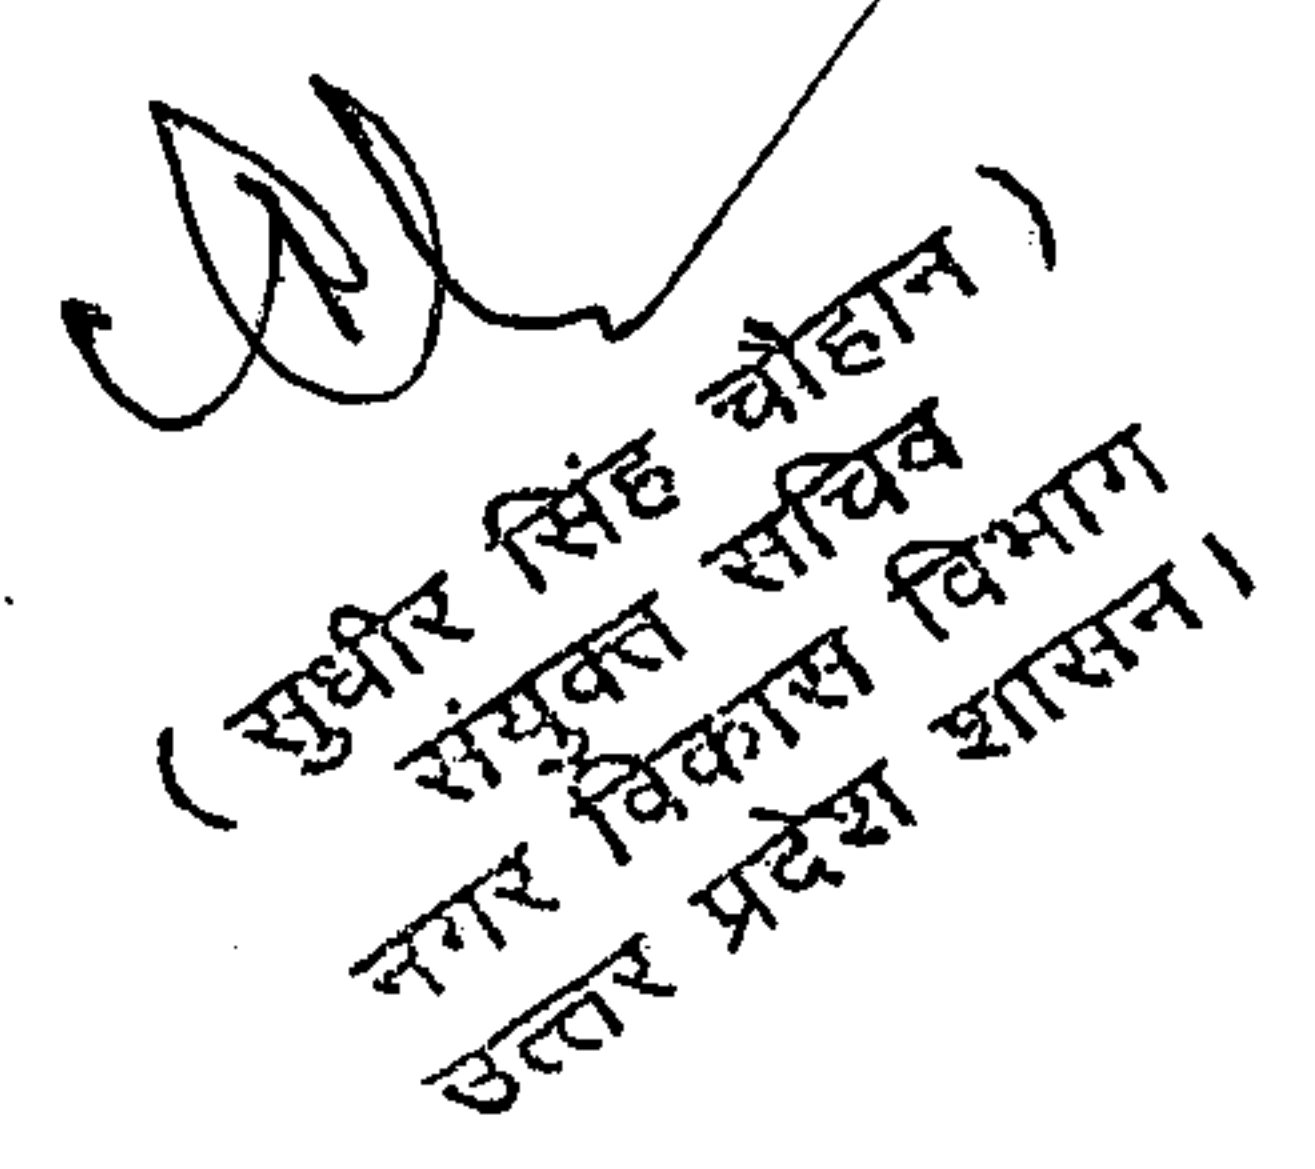 ( सुधीर सिंह चौहान )
संयुक्त सचिव
नगर विकास विभाग
उत्तर प्रदेश शासन।